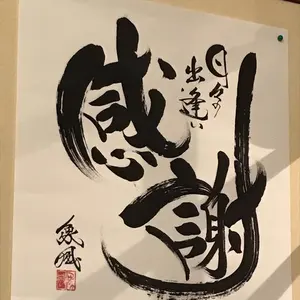 日々の
出逢い
感謝